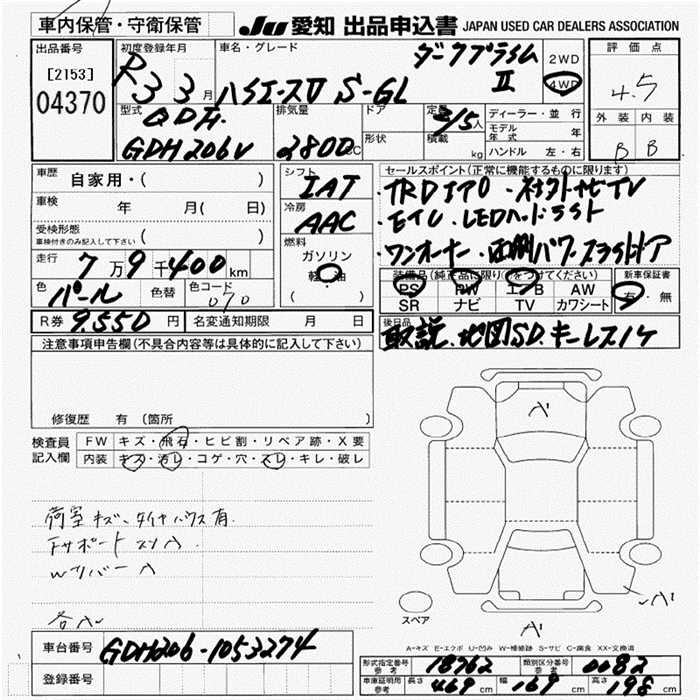 車内保管・守衛保管
JU 愛知 出品申込書 JAPAN USED CAR DEALERS ASSOCIATION
出品番号
[2153]
04370
初度登録年月
R3 3月
車名・グレード
ダークプライム
II
ハイエースV S-GL
2WD
4WD
評価点
4.5
外装 内装
B B
型式
QDF
GDH206V
排気量
2800 CC
ドア
形状
定員
2/5人
積載
kg
ディーラー・並行
モデル年式 年
ハンドル 左・右
車歴
自家用・( )
車検
年 月( 日)
受検形態
車検付きのみ記入して下さい ( )
走行
7万9千400km
色
パール
色替
色コード
070
R券 9.550円
名変通知期限 月 日
シフト
IAT
冷房
AAC
燃料
ガソリン
軽油
( )
セールスポイント(正常に機能するものに限ります)
・TRDエアロ・社外ナビTV
・モデル・LEDヘッドライト
・ワンオーナー・両側パワースライドドア
装備品(純正品に限り○をつけてください)
PS PW エアB AW
SR ナビ TV カワシート
新車保証書
有・無
後日品
取説、地図SD、キーレス1ケ
注意事項申告欄(不具合内容等は具体的に記入して下さい)
修復歴 有 (箇所 )
検査員
記入欄
FW キズ・飛石・ヒビ割・リペア跡・X要
内装 キズ・汚レ・コゲ・穴・スレ・キレ・破レ
荷室キズ、タイヤハウス有
Fサポート スリA
WリバーA
A1
A1
A1
スペア
A-キズ E-エクボ U-凹み W-補修跡 S-サビ C-腐食 XX-交換済
車台番号 GDH206-1053274
登録番号
形式指定番号 参考 18762
類別区分番号 参考 0082
車庫証明用 参考 長さ 469 cm 幅 169 cm 高さ 198 cm